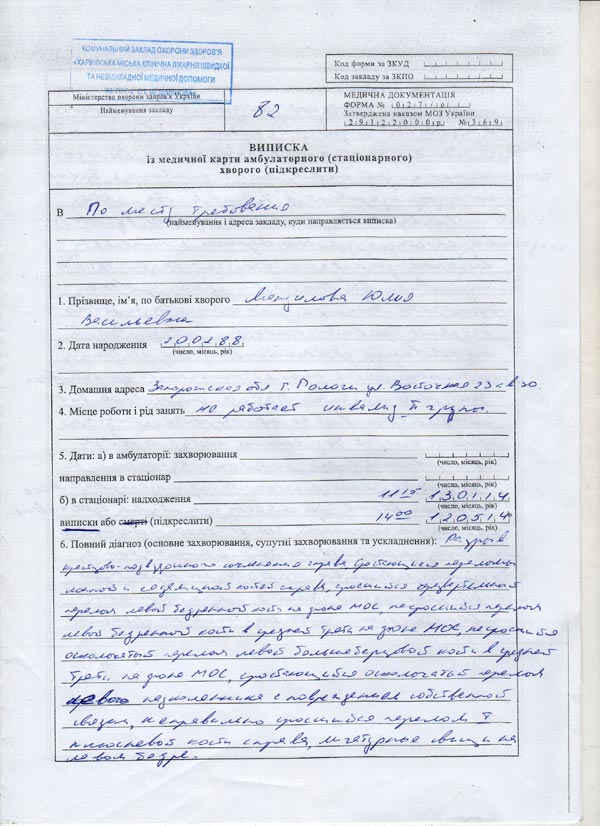 КОМУНАЛЬНИЙ ЗАКЛАД ОХОРОНИ ЗДОРОВ'Я
«ХАРКІВСЬКА МІСЬКА КЛІНІЧНА ЛІКАРНЯ ШВИДКОЇ
ТА НЕВІДКЛАДНОЇ МЕДИЧНОЇ ДОПОМОГИ
Міністерство охорони здоров'я України
Найменування закладу
82
Код форми за ЗКУД
Код закладу за ЗКПО
МЕДИЧНА ДОКУМЕНТАЦІЯ
ФОРМА № 027/о
Затверджена наказом МОЗ України
29122000р. №369
ВИПИСКА
із медичної карти амбулаторного (стаціонарного)
хворого (підкреслити)
В По месту требования
(найменування і адреса закладу, куди направляється виписка)
1. Прізвище, ім'я, по батькові хворого Юлия
Васильевна
2. Дата народження 200288
(число, місяць, рік)
3. Домашня адреса Запорожская обл г. Пологи ул. Восточная 23 кв 30.
4. Місце роботи і рід занять не работает инвалид II группы
5. Дати: а) в амбулаторії: захворювання
(число, місяць, рік)
направлення в стаціонар
(число, місяць, рік)
б) в стаціонарі: надходження 11 15 130114
(число, місяць, рік)
виписки або смерті (підкреслити) 14 00 120514
(число, місяць, рік)
6. Повний діагноз (основне захворювання, супутні захворювання та ускладнення): Разрыв
крестцово-подвздошного сочленения справа срастающиеся переломы
лонной и седалищной костей справа, сросшийся чрезвертельный
перелом левой бедренной кости на фоне МОС, несросшийся перелом
левой бедренной кости в средней трети на фоне МОС, несросшийся
оскольчатый перелом левой большеберцовой кости в средней
трети на фоне МОС, срастающийся оскольчатый перелом
левого надколенника с повреждением собственной
связки, неправильно сросшийся перелом I
плюсневой кости справа, лигатурные свищи на
левом бедре.